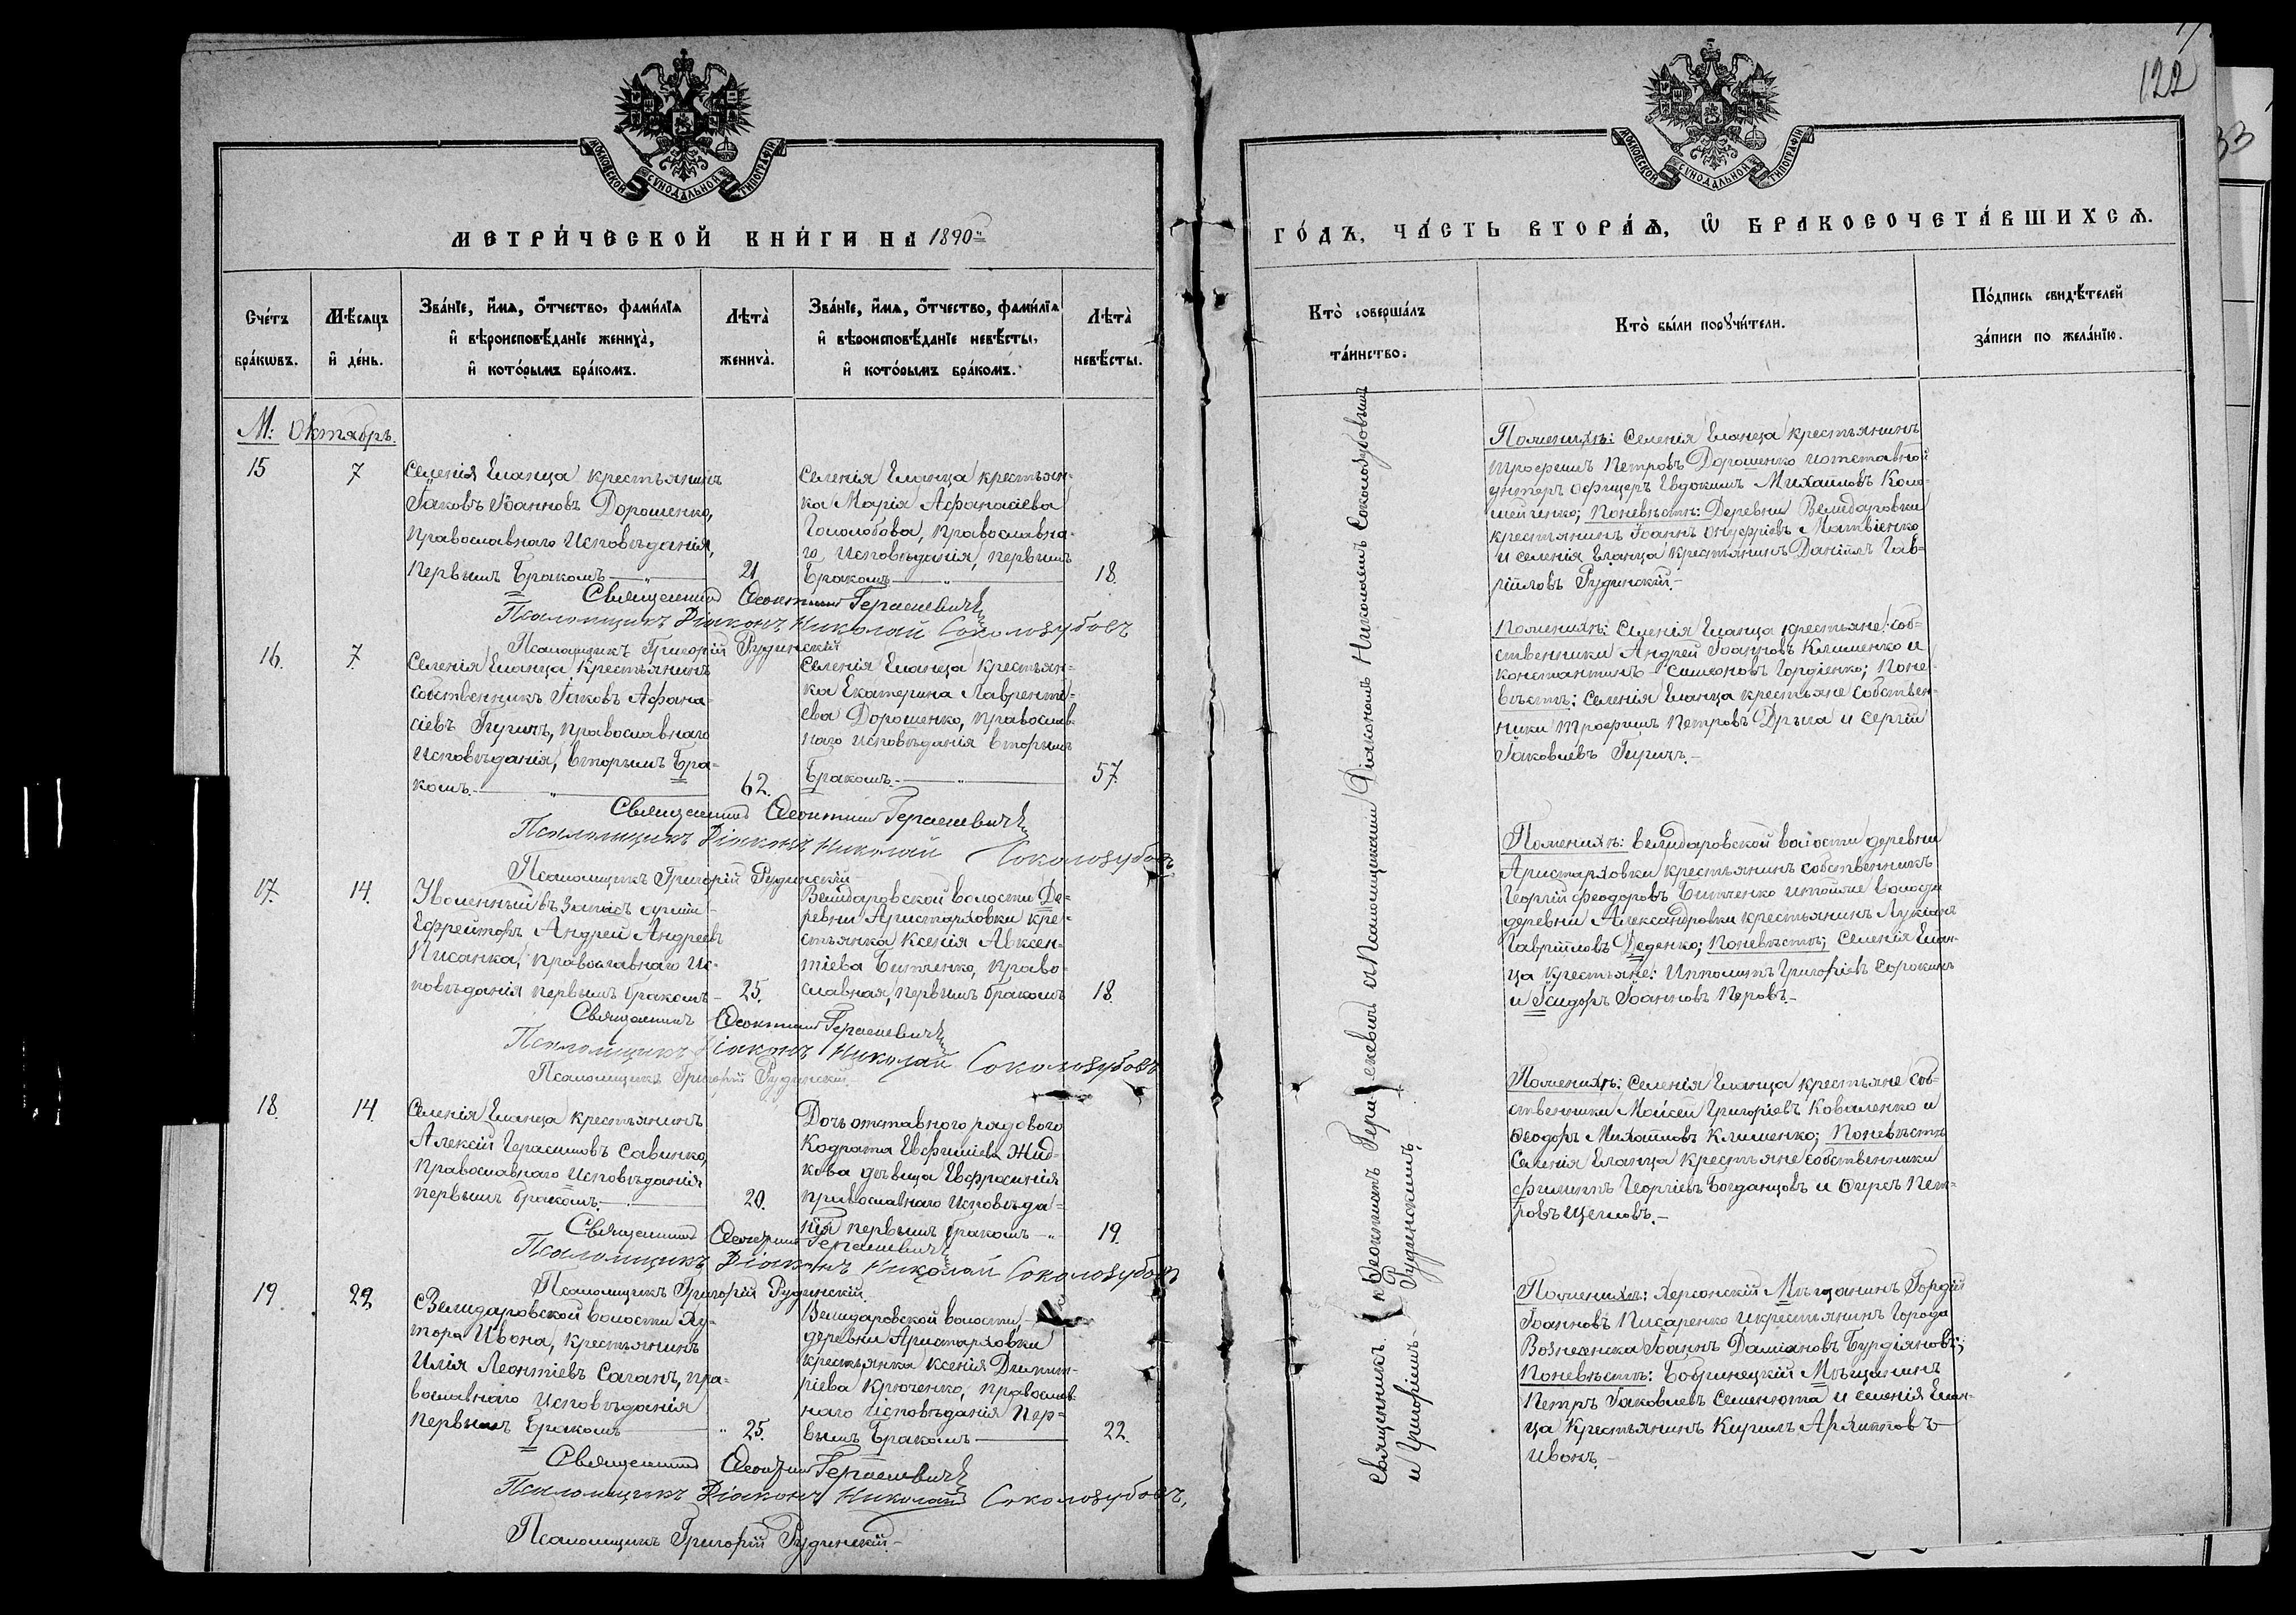 122
33
МОСКОВСКОЙ СѴНОДАЛЬНОЙ ТИПОГРАФІИ
МОСКОВСКОЙ СѴНОДАЛЬНОЙ ТИПОГРАФІИ
МЕТРИ́ЧЕСКОЙ КНИ́ГИ НА 1890й
ГО́ДЪ, ЧА́СТЬ ВТОРА́Ѧ, Ѽ БРАКОСОЧЕТА́ВШИХСѦ.
Сче́тъ бра́кѡвъ.
Мѣ́сяцъ и҆ де́нь.
Зва́нїе, и҆́мѧ, ѻ҆́тчество, фами́лїѧ
и҆ вѣроисповѣ́данїе жениха̀,
и҆ кото́рымъ бра́комъ.
Лѣта̀ жениха̀.
Зва́нїе, и҆́мѧ, ѻ҆́тчество, фами́лїѧ
и҆ вѣроисповѣ́данїе невѣ́сты,
и҆ кото́рымъ бра́комъ.
Лѣта̀ невѣ́сты.
Кто̀ соверша́лъ
та́инство.
Кто̀ бы́ли порꙋчи́тели.
По́дпись свидѣ́телей
за́писи по жела́нїю.
М: Октябрь.
15
7
Селенія Еланца крестьянинъ
Іаковъ Іоанновъ Дорошенко,
православнаго исповѣданія,
первымъ бракомъ
21
Селенія Еланца крестьян-
ка Марія Афанасіева
Гололобова, православна-
го исповѣданія, первымъ
бракомъ
18.
Священникъ Ѳеоктистъ Герасевичъ
Псаломщикъ Діаконъ Николай Соколозубовъ
Псаломщикъ Григорій Рудинскій
16.
7.
Селенія Еланца крестьянинъ
собственникъ Іаковъ Афана-
сіевъ Гиричъ, православнаго
исповѣданія, вторымъ бра-
комъ.
62.
Селенія Еланца крестьян-
ка Екатерина Лаврентi-
ева Дорошенко, православ-
наго исповѣданія вторымъ
бракомъ.
57.
Священникъ Ѳеоктистъ Герасевичъ
Псаломщикъ Діаконъ Николай Соколозубовъ
Псаломщикъ Григорій Рудинскій
17.
14.
Уволенный въ запасъ арміи
Ефрейторъ Андрей Андреевъ
Писанка, православнаго ис-
повѣданія первымъ бракомъ
25.
Велидаровской волости де-
ревни Аристарховки кре-
стьянка Ксенія Авксен-
тіева Битченко, право-
славная, первымъ бракомъ
18.
Священникъ Ѳеоктистъ Герасевичъ
Псаломщикъ Діаконъ Николай Соколозубовъ
Псаломщикъ Григорій Рудинскій.
18.
14.
Селенія Еланца крестьянинъ
Алексій Герасимовъ Савинко,
православнаго исповѣданія
первымъ бракомъ.
20.
Дочь отставного рядового
Кодрата Евфиміева Жид-
кова дѣвица Евфросинія
православнаго исповѣда-
нія первымъ бракомъ
19.
Священникъ Ѳеоктистъ Герасевичъ
Псаломщикъ Діаконъ Николай Соколозубовъ
Псаломщикъ Григорій Рудинскій.
19.
22.
Велидаровской волости Ху-
тора Ивона, крестьянинъ
Илія Леонтіевъ Саганъ, пра-
вославнаго исповѣданія
первымъ бракомъ
25.
Велидаровской волости,
деревни Аристарховки
крестьянка Ксенія Димит-
ріева Крюченко, православ-
наго исповѣданія пер-
вымъ бракомъ
22.
Священникъ Ѳеоктистъ Герасевичъ
Псаломщикъ Діаконъ Николай Соколозубовъ,
Псаломщикъ Григорій Рудинскій.
Священникъ Ѳеоктистъ Герасевичъ съ Псаломщиками Діакономъ Николаемъ Соколозубовымъ
и Григоріемъ Рудинскимъ
По женихѣ: Селенія Еланца крестьянинъ
Трофимъ Петровъ Дорошенко и отставной
унтеръ офицеръ Евдокимъ Михаиловъ Коло-
мейченко; По невѣстѣ: Деревни Велидаровки
крестьянинъ Іоаннъ Онуфріевъ Матвіенко
и селенія Еланца крестьянинъ Даніилъ Гав-
ріиловъ Рудинскій.
По женихѣ: Селенія Еланца крестьяне соб-
ственники Андрей Іоанновъ Клименко и
Константинъ Симеоновъ Гордіенко; По не-
вѣстѣ: Селенія Еланца крестьяне собствен-
ники Трофимъ Петровъ Дрыга и Сергій
Іаковлевъ Гиричъ.
По женихѣ: Велидаровской волости деревни
Аристарховки крестьянинъ собственникъ
Георгій Феодоровъ Битченко и той же волости
деревни Александровки крестьянинъ Лукіанъ
Гавріиловъ Деденко; По невѣстѣ; Селенія Елан-
ца крестьяне: Ипполитъ Григоріевъ Сорокинъ
и Ісидоръ Іоанновъ Перовъ.
По женихѣ: Селенія Еланца крестьяне соб-
ственники Моисей Григоріевъ Коваленко и
Ѳеодоръ Михаиловъ Клименко; По невѣстѣ
Селенія Еланца крестьяне собственники
Филиппъ Георгіевъ Богданцовъ и Ѳирсъ Пет-
ровъ Щегловъ.
По женихѣ: Херсонскій Мѣщанинъ Гордій
Іоанновъ Писаренко и крестьянинъ города
Вознесенска Іоаннъ Даміановъ Бурдіяновъ;
По невѣстѣ: Бобринецкій Мѣщанинъ
Петръ Іаковлевъ Семенюта и селенія Елан-
ца крестьянинъ Кирилъ Архиповъ
Ивонъ.